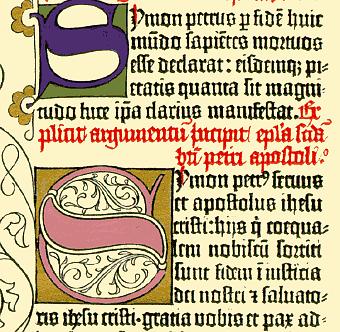 Symon petrus ꝑ fidē huic
mūdo sapiētes mortuos
esse declarat: eisdemqꝫ pi-
etatis quanta sit magni-
tudo luce ip̄a clarius manifestat. Ex
plicit argumentū incipit ep̄la scd̄a
bt̄i petri apostoli.
Symon petrꝰ servus
et apostolus ihesu
cristi: hijs q̇ coequa-
lem nobiscū sortiti
sunt fidem ī iusticia
dei nostri ⁊ saluato-
ris ihesu cristi. gratia vobis et pax ad-